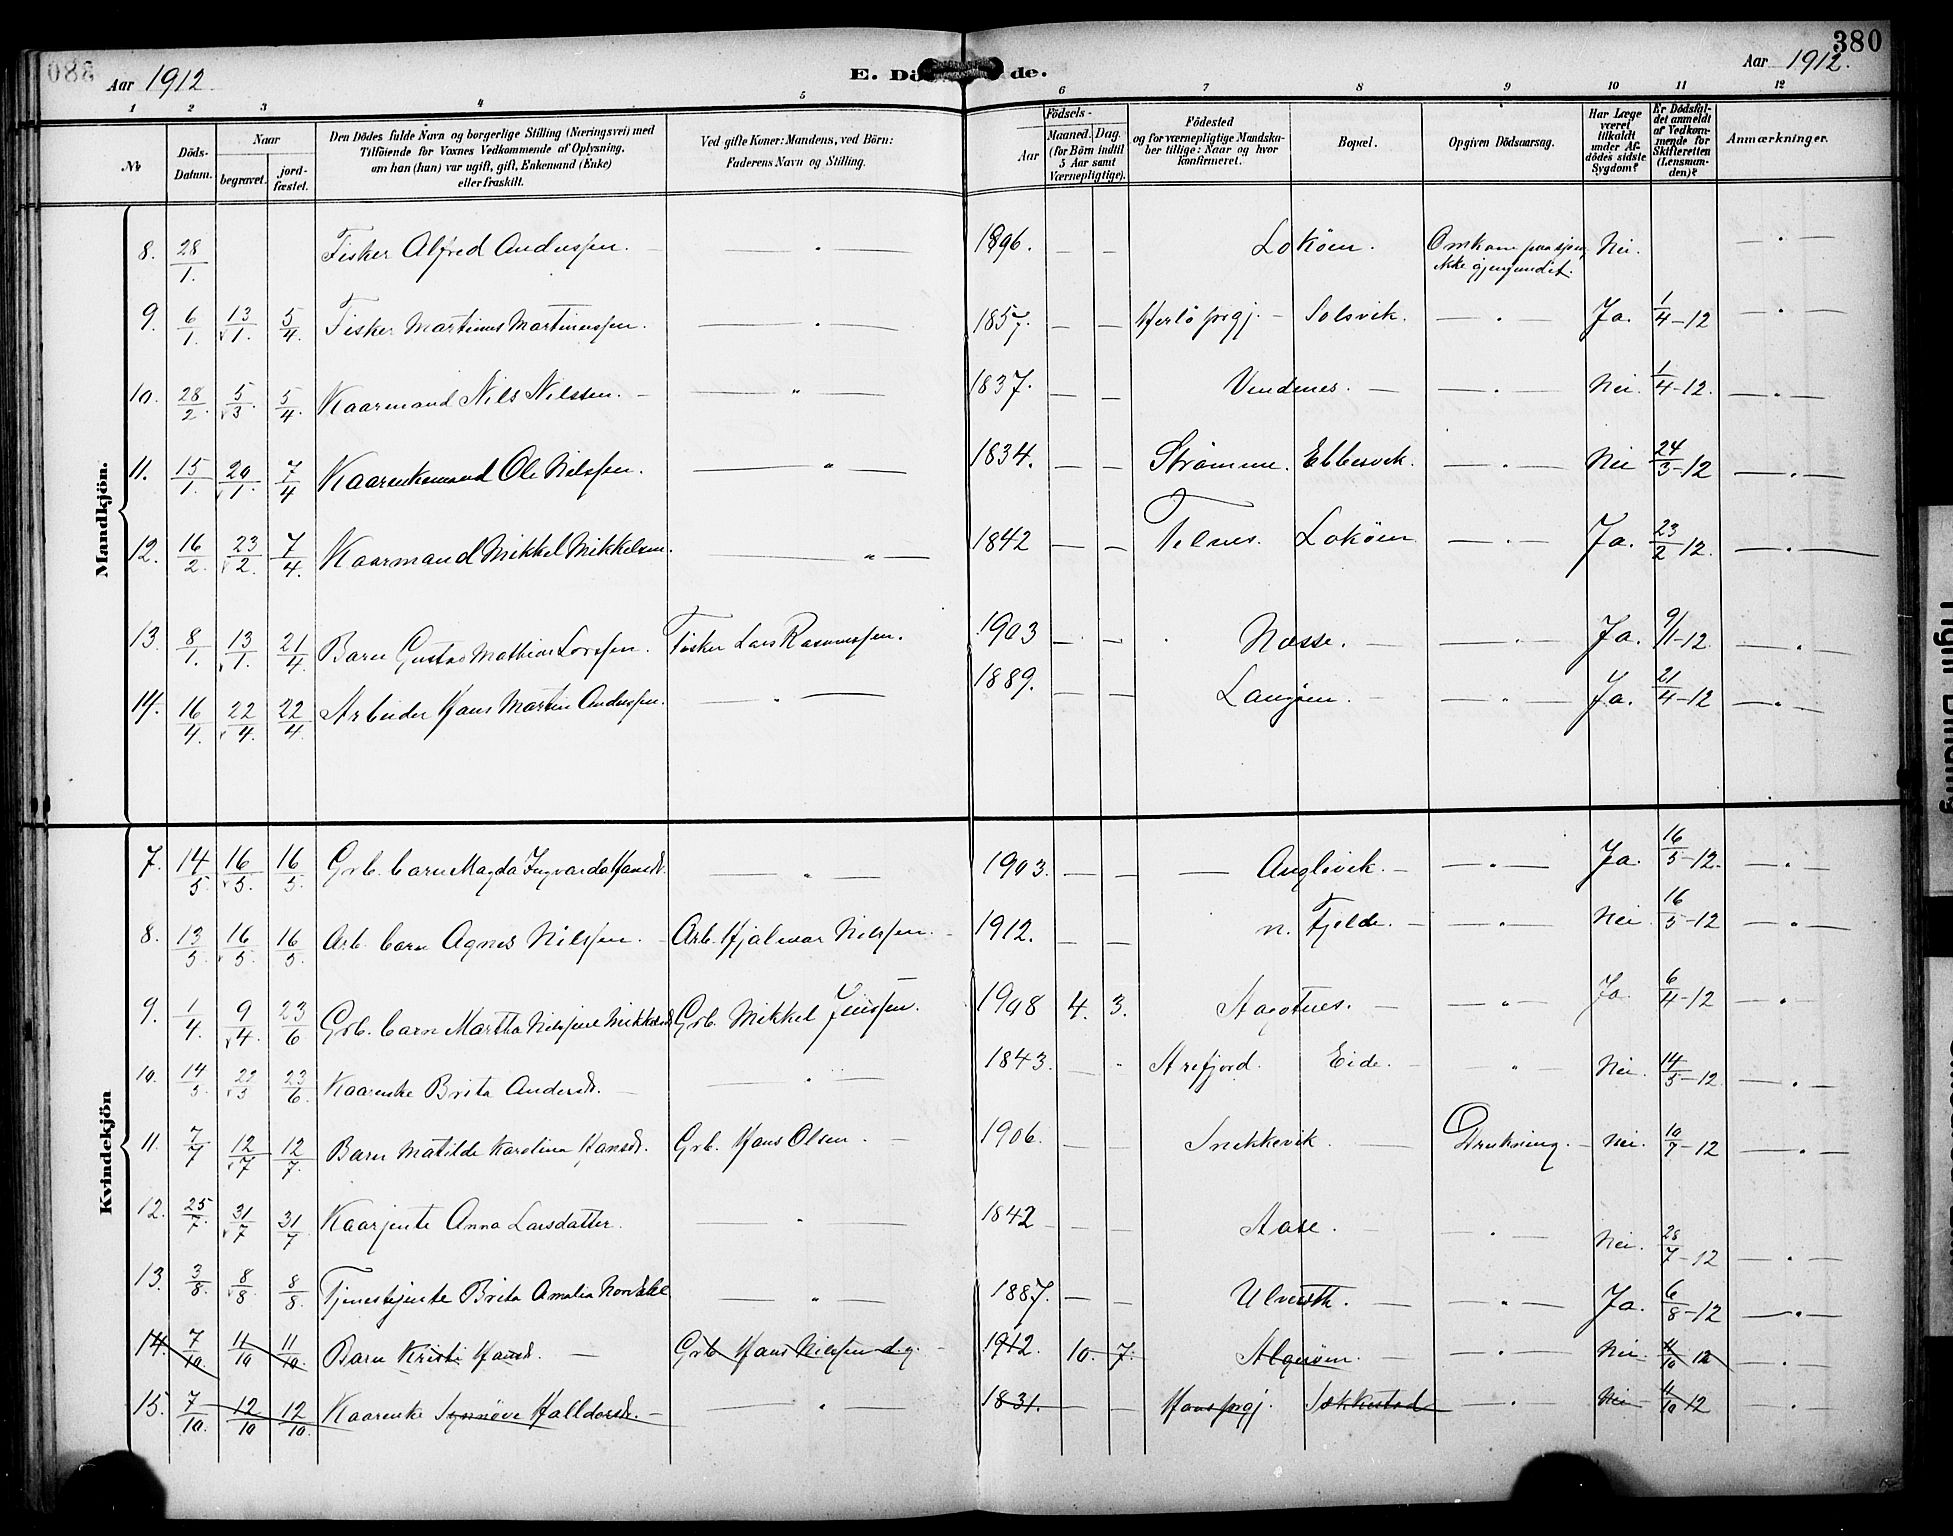 380
Aar 1912. E. Dö de. Aar 1912.
1 2 3 4 5 6 7 8 9 10 11 12
№ Döds-Datum. Naar begravet. jord-fæstet. Den Dödes fulde Navn og borgerlige Stilling (Næringsvei) med Tilföiende for Voxnes Vedkommende af Oplysning, om han (hun) var ugift, gift, Enkemand (Enke) eller fraskilt. Ved gifte Koner: Mandens, ved Börn: Faderens Navn og Stilling. Födsels- Aar Maaned. Dag. (for Börn indtil 5 Aar samt Værnepligtige). Födested og for værnepligtige Mandskaber tillige: Naar og hvor konfirmeret. Bopæl. Opgiven Dödsaarsag. Har Læge været tilkaldt under Afdödes sidste Sygdom? Er Dödsfaldet anmeldt af Vedkommende for Skifteretten (Lensmanden)? Anmærkninger.
Mandkjön.
8. 28/1. Fisker Alfred Anderssen. — " — 1896. — — Lokøen. Omkom paa sjøen, ikke gjenfundet. Nei. — " —
9. 6/1. 13/1. 5/4. Fisker Martinus Martinussen. — " — 1857. — — Herlø prgj. — Solsvik. — " — Ja. 1/4-12 — " —
10. 28/2. 5/3. 5/4. Kaarmand Nils Nilssen. — " — 1837. — — Vindenes. — — " — Nei. 1/4-12. — " —
11. 15/1. 20/1. 7/4 Kaarenkemand Ole Nilssen. — " — 1834. — — Strømme. Ebbesvik. — " — Nei 24/3-12 — " —
12. 16/2. 23/2. 7/4. Kaarmand Mikkel Mikkelsen. — " — 1842 — — Telnes. Lokøen — " — Ja. 23/2-12. — " —
13. 8/1. 13/1. 21/4. Barn Gustav Mathias Larssen. Fisker Lars Rasmussen. 1903 — — Næsse. — " — Ja. 9/1-12. — " —
14. 16/4. 22/4. 22/4. Arbeider Hans Martin Anderssen. — " — 1889. — — Langøen. — — " — Ja. 21/4-12 — " —
Kvindekjön
7. 14/5. 16/5. 16/5. Grb. barn Magda Ingvarda Hansd. — " — 1903. — — — Anglevik. — — " — Ja. 16/5-12. — " —
8. 13/5. 16/5. 16/5. Arb. barn Agnes Nilssen. — Arb. Hjalmar Nilssen. — 1912. — — n. Fjelde. — — " — Nei 16/5-12 — " —
9. 1/4. 9/4. 23/6 Grb. barn Martha Nilsine Mikkelsd. Grb. Mikkel Jenssen. 1908 4. 3. Aagotnes. — — " — Ja 6/4-12 — " —
10. 14/5. 22/5 23/6. Kaarenke Brita Andersd. — — " — 1843. — " Arefjord. Eide. — " — Nei. 14/5-12. — " —
11. 7/7 12/7 12/7. Barn Matilde Karolina Hansd. Grb. Hans Olsen. — 1906. — — Snekkevik. — Drukning. — Nei. 10/7-12 — " —
12. 25/7. 31/7 31/7 Kaarjente Anna Larsdatter. — " — 1842 — — Aase. — " — Nei. 28/7-12 — " —
13. 3/8. 8/8. 8/8. Tjenestejente Brita Amalia — " — 1887. — — Ulveseth. — — " — Ja. 6/8-12 — " —
14. 7/10. 11/10 11/10. Barn Kristi Hansd. — Grb Hans Nielsen d.y. — 1912. 10. 7. Algerøen. — — " — Nei. 11/10 12 — " —
15. 7/10. 12/10 12/10. Kaarenke Synnøve Halldorsd. — — " — 1831. — — Hans prgj. Sækkestad — " — Nei 11/10 12 — " —